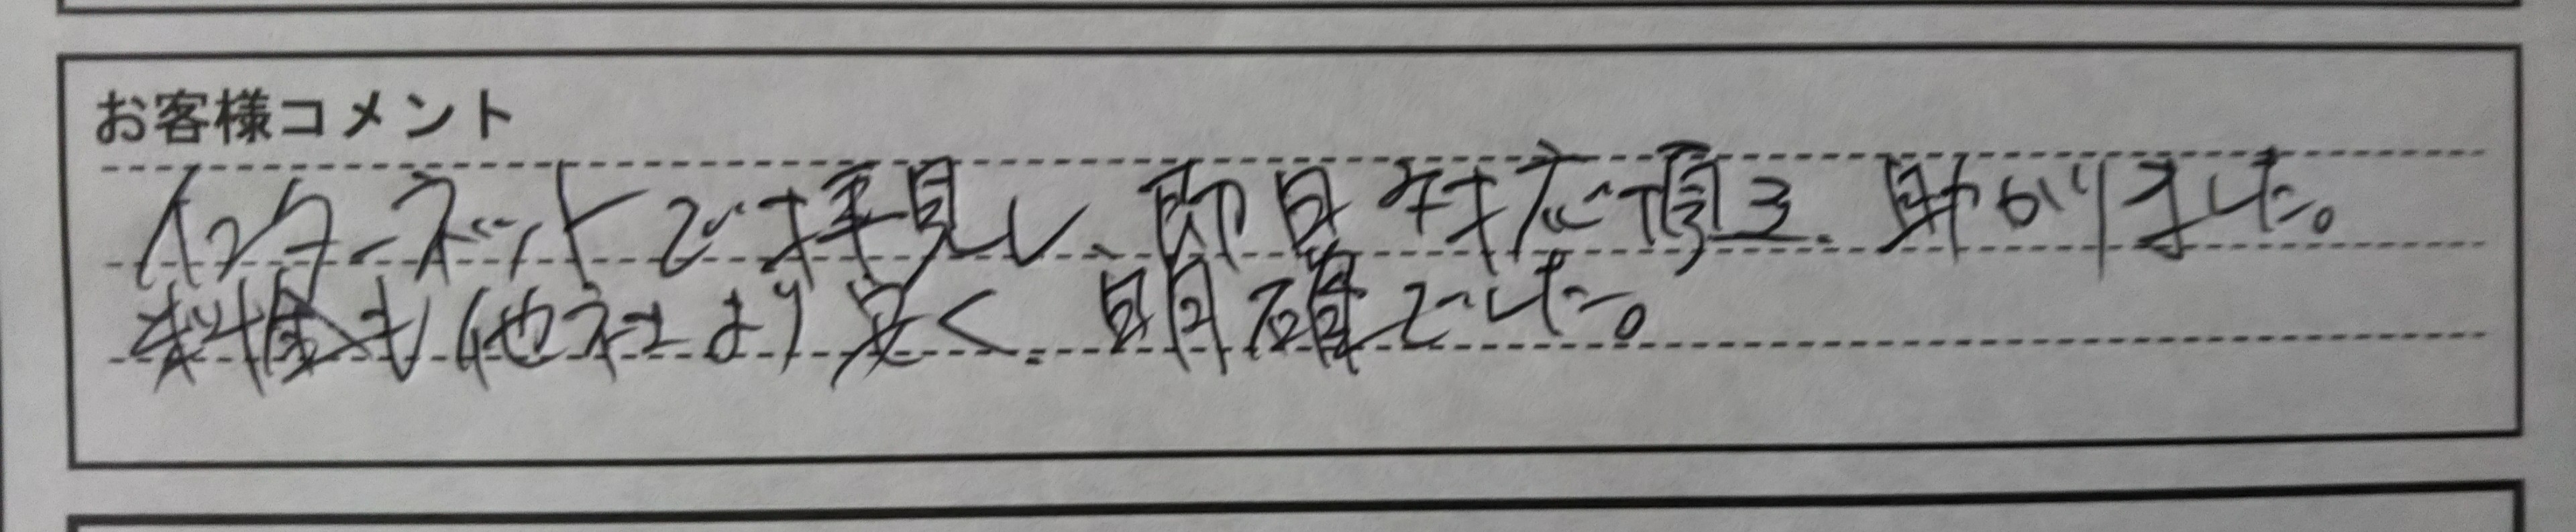 お客様コメント
インターネットで拝見し、即日対応頂き、助かりました。
料金も他社より安く、明確でした。